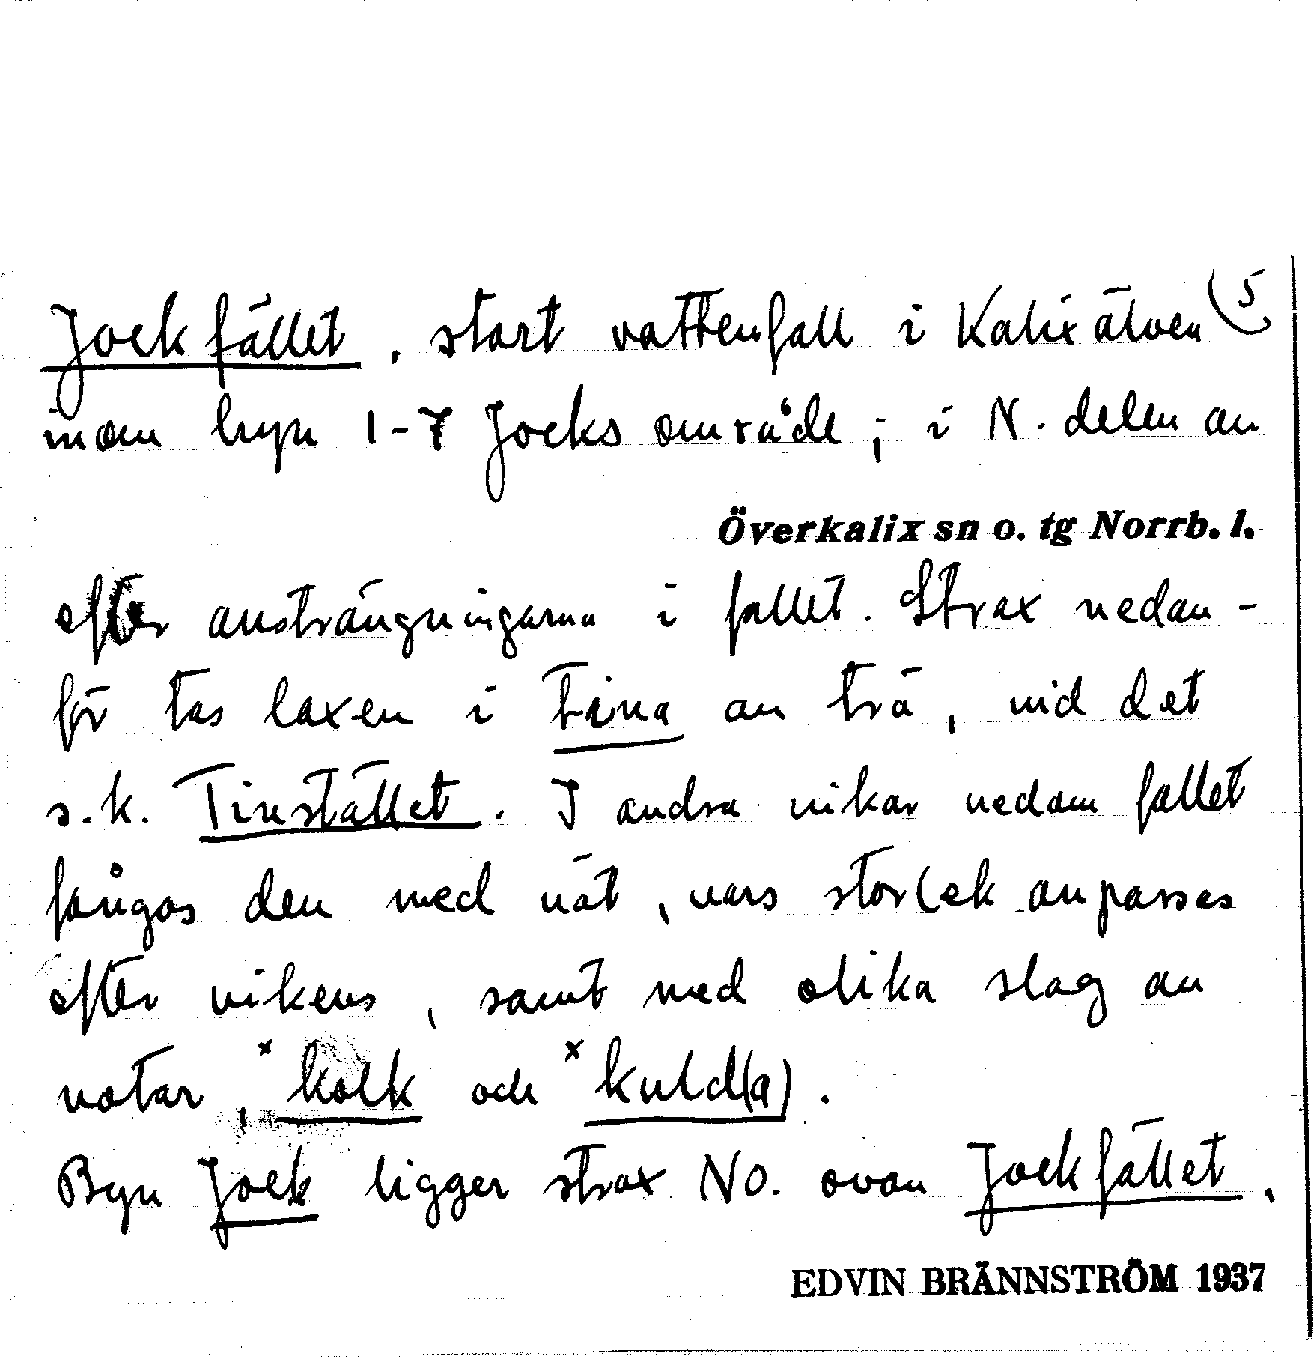 Jockfället, stort vattenfall i Kalixälven 5
inom byn 1-7 Jocks område; i N. delen av
Överkalix sn o. tg Norrb. l.
efter ansträngningarna i fallet. Strax nedan-
för tas laxen i tina av trä, vid det
s.k. Tinstället. I andra vikar nedom fallet
fångas den med nät, vars storlek anpasses
efter vikens, samt med olika slag av
notar, ˣkolk och ˣkuld(a).
Byn Jock ligger strax NO. ovan Jockfället.
EDVIN BRÄNNSTRÖM 1937